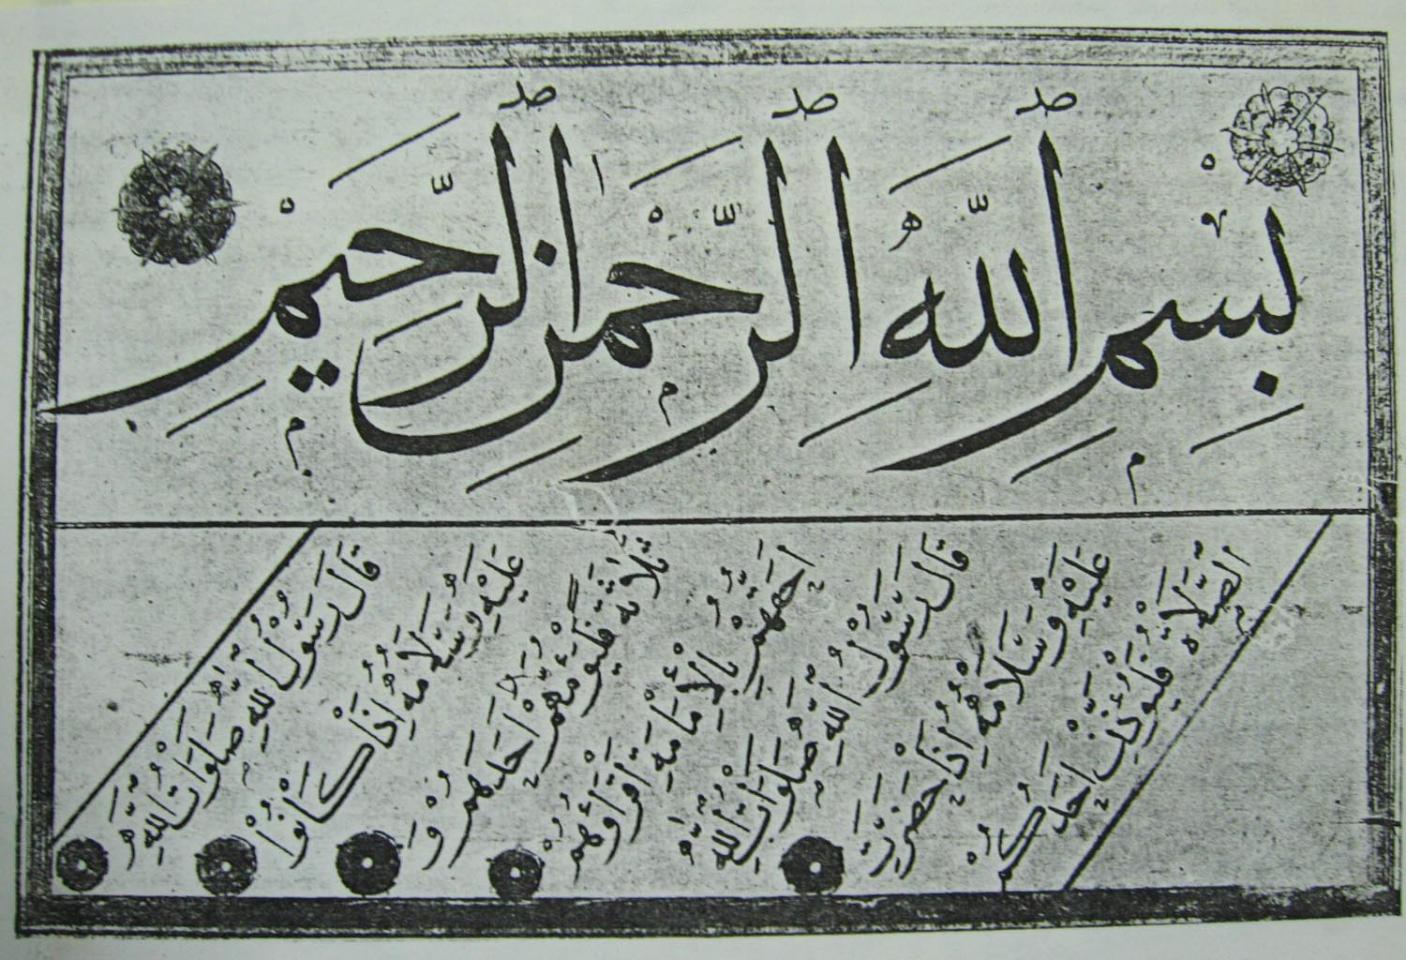 بِسْمِ اللَّهِ الرَّحْمَنِ الرَّحِيْمِ
قَالَ رَسُوْلُ اللَّهِ صَلَوَاتُ اللَّهِ
عَلَيْهِ وَسَلَامُهُ اِذَا كَانُوْا
ثَلَاثَةً فَلْيَؤُمَّهُمْ اَحَدُهُمْ وَ
اَحَقُّهُمْ بِالْاِمَامَةِ اَقْرَأُهُمْ
قَالَ رَسُوْلُ اللَّهِ صَلَوَاتُ اللَّهِ
عَلَيْهِ وَسَلَامُهُ اِذَا حَضَرَتِ
الصَّلَاةُ فَلْيُؤَذِّنْ اَحَدُكُمْ